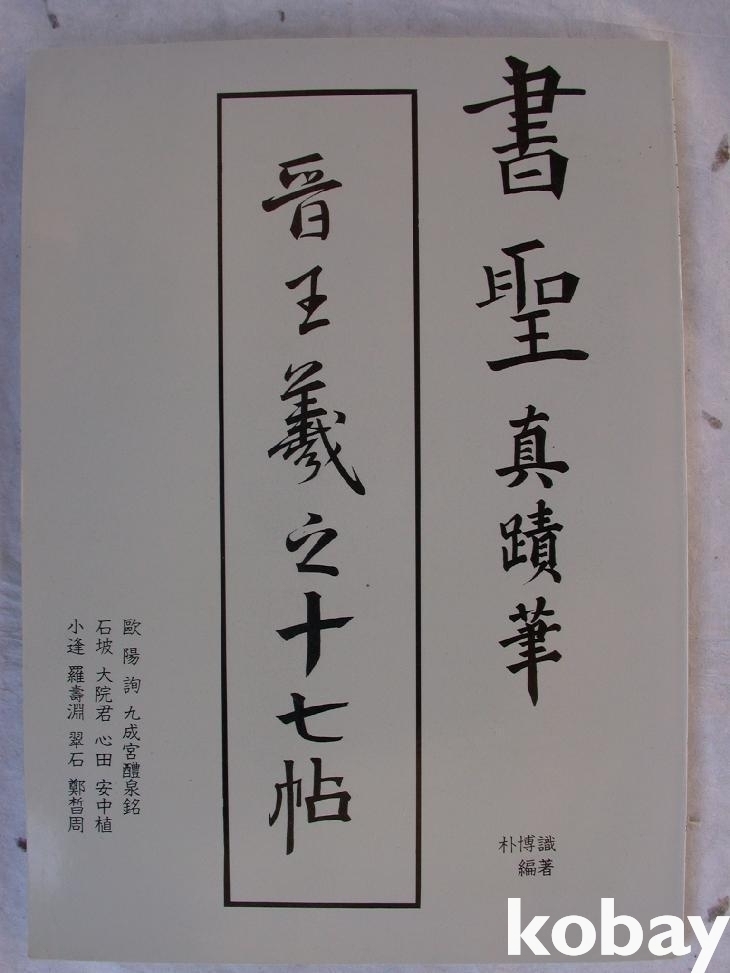 書聖真蹟筆
朴博識
編著
晋王羲之十七帖
歐陽詢 九成宮醴泉銘
石坡 大院君 心田 安中植
小逢 羅壽淵 翠石 鄭晳周
kobay